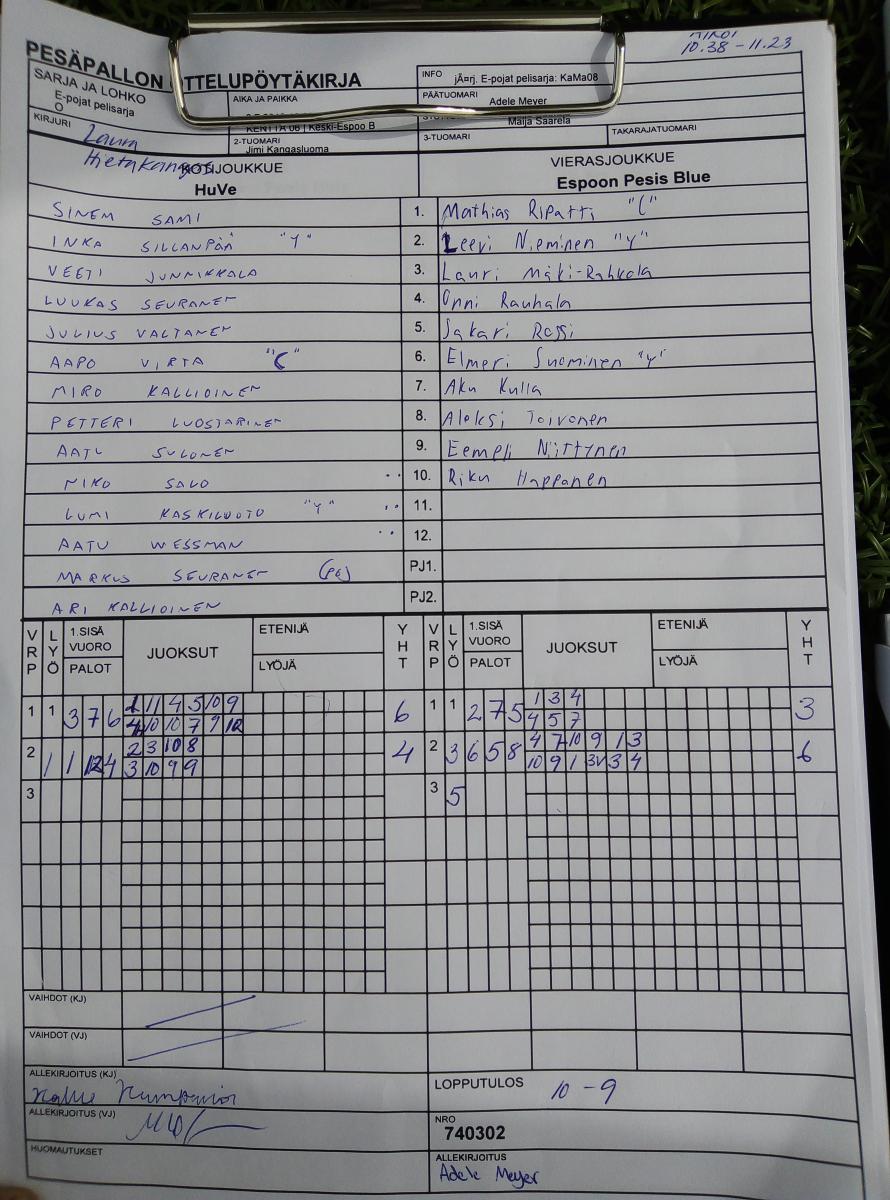 10.38 - 11.23
PESÄPALLON OTTELUPÖYTÄKIRJA
SARJA JA LOHKO
E-pojat pelisarja
O
AIKA JA PAIKKA
KENTTÄ 06 | Keski-Espoo B
INFO jÃ¤rj. E-pojat pelisarja: KaMa08
PÄÄTUOMARI
Adele Meyer
Maija Saarela
KIRJURI Laura
Hietakangas
2-TUOMARI
Jimi Kangasluoma
3-TUOMARI
TAKARAJATUOMARI
KOTIJOUKKUE
HuVe
VIERASJOUKKUE
Espoon Pesis Blue
SINEM SAMI 1. Mathias Ripatti "C"
INKA SILLANPÄÄ "Y" 2. Leevi Nieminen "Y"
VEETI JUNNIKKALA 3. Lauri Mäki-Rahkola
LUUKAS SEURANEN 4. Onni Rauhala
JULIUS VALTANEN 5. Sakari Rossi
AAPO VIRTA "C" 6. Elmeri Suominen "Y"
MIRO KALLIOINEN 7. Aku Kulla
PETTERI LUOSTARINEN 8. Aleksi Toivonen
AATU SULONEN 9. Eemeli Niittynen
NIKO SALO 10. Riku Happanen
LUMI KASKILUOTO "Y" 11.
AATU WESSMAN 12.
MARKUS SEURANEN (PE) PJ1.
ARI KALLIOINEN PJ2.
VRP LYÖ 1.SISÄ VUORO PALOT JUOKSUT ETENIJÄ LYÖJÄ YHT VRP LYÖ 1.SISÄ VUORO PALOT JUOKSUT ETENIJÄ LYÖJÄ YHT
1 1 3 7 6 11 4 5 10 9 6 1 1 2 7 5 1 3 4 3
10 10 7 9 12 4 5 7
2 1 1 12 4 2 3 10 8 4 2 3 6 5 8 4 7 10 9 1 3 6
3 10 9 9 10 9 1 3V 3 4
3 3 5
VAIHDOT (KJ)
VAIHDOT (VJ)
ALLEKIRJOITUS (KJ)
LOPPUTULOS 10 - 9
ALLEKIRJOITUS (VJ)
NRO
740302
HUOMAUTUKSET
ALLEKIRJOITUS
Adele Meyer